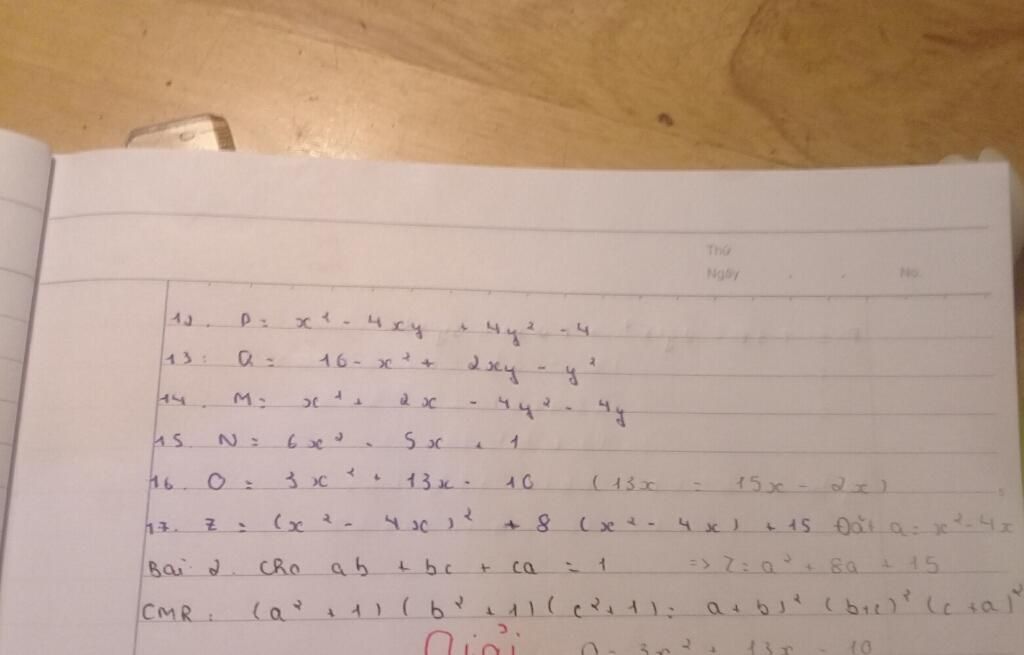 Thứ
Ngày . . No.
12. P = x² - 4xy + 4y² - 4
13: Q = 16 - x² + 2xy - y²
14. M = x² + 2x - 4y² - 4y
15. N = 6x² - 5x + 1
16. O = 3x² + 13x - 10 (13x = 15x - 2x)
17. Z = (x² - 4x)² + 8 (x² - 4x) + 15 Đặt a = x² - 4x
Bài 2. Cho ab + bc + ca = 1 => Z = a² + 8a + 15
CMR: (a² + 1) (b² + 1) (c² + 1) = a + b)² (b+c)² (c + a)²
Giải O = 3x² + 13x - 10